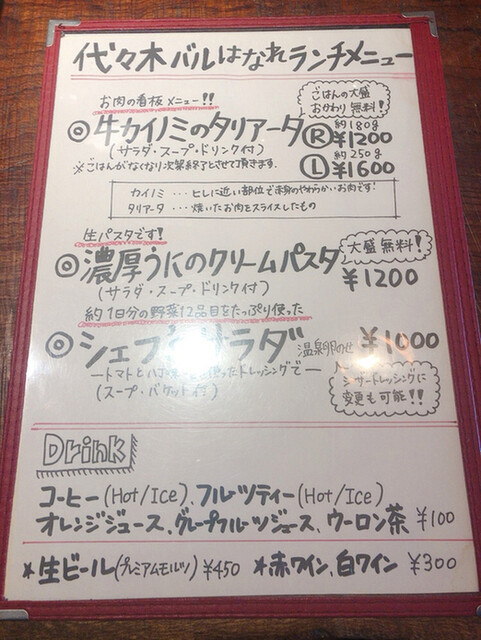 代々木バルはなれランチメニュー
お肉の看板メニュー!!
ごはんの大盛
おかわり無料!
◎牛カイノミのタリアータ
Ⓡ約180g ¥1200
(サラダ・スープ・ドリンク付)
Ⓛ約250g ¥1600
※ごはんがなくなり次第終了とさせて頂きます。
カイノミ・・・ヒレに近い部位で赤身のやわらかいお肉です!
タリアータ・・・焼いたお肉をスライスしたもの
生パスタです!
大盛無料!
◎濃厚うにのクリームパスタ ¥1200
(サラダ・スープ・ドリンク付)
約1日分の野菜12品目をたっぷり使った
◎シェフ サラダ 温泉卵のせ ¥1000
ートマトと 使ったドレッシングでー
(スープ・バケット付)
シーザードレッシングに
変更も可能!!
Drink
コーヒー(Hot/Ice)、フルーツティー(Hot/Ice)
オレンジジュース、グレープフルーツジュース、ウーロン茶 ¥100
★生ビール(プレミアムモルツ)¥450 ★赤ワイン、白ワイン ¥300